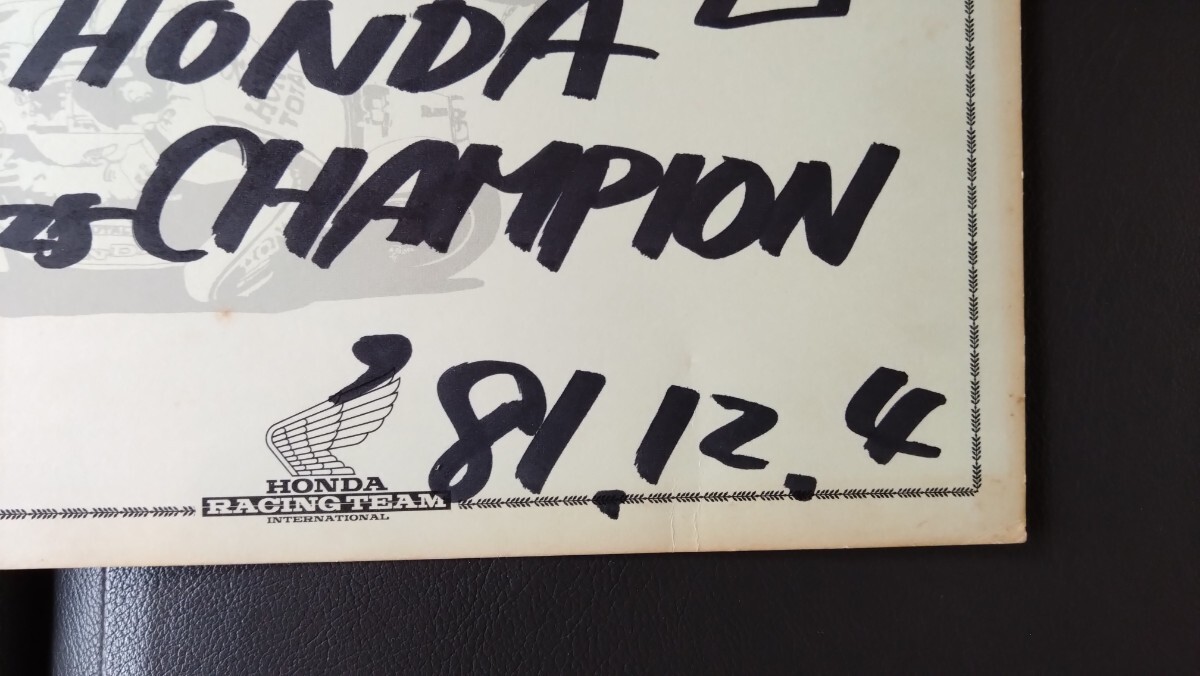 HONDA
CHAMPION
'81.12.4
HONDA
RACING TEAM
INTERNATIONAL